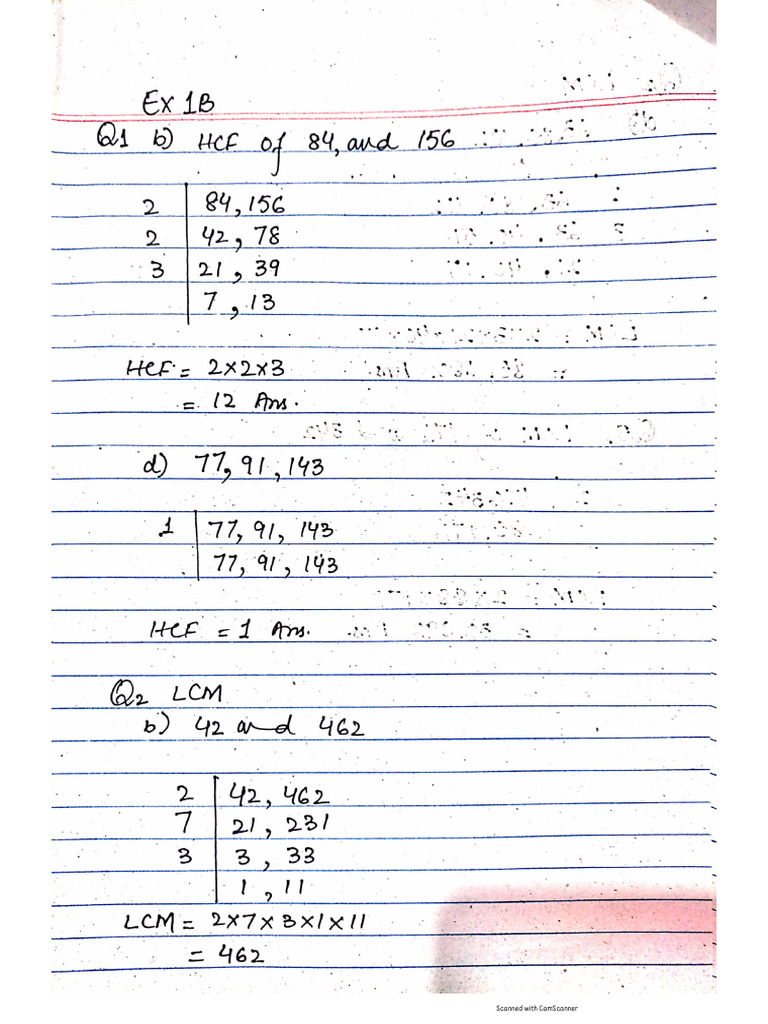 Ex 1B
Q1 b) HCF of 84, and 156
2 | 84, 156
2 | 42, 78
3 | 21, 39
7, 13
HCF = 2x2x3
= 12 Ans.
d) 77, 91, 143
1 | 77, 91, 143
77, 91, 143
HCF = 1 Ans.
Q2 LCM
b) 42 and 462
2 | 42, 462
7 | 21, 231
3 | 3, 33
1, 11
LCM = 2x7x3x1x11
= 462
Scanned with CamScanner